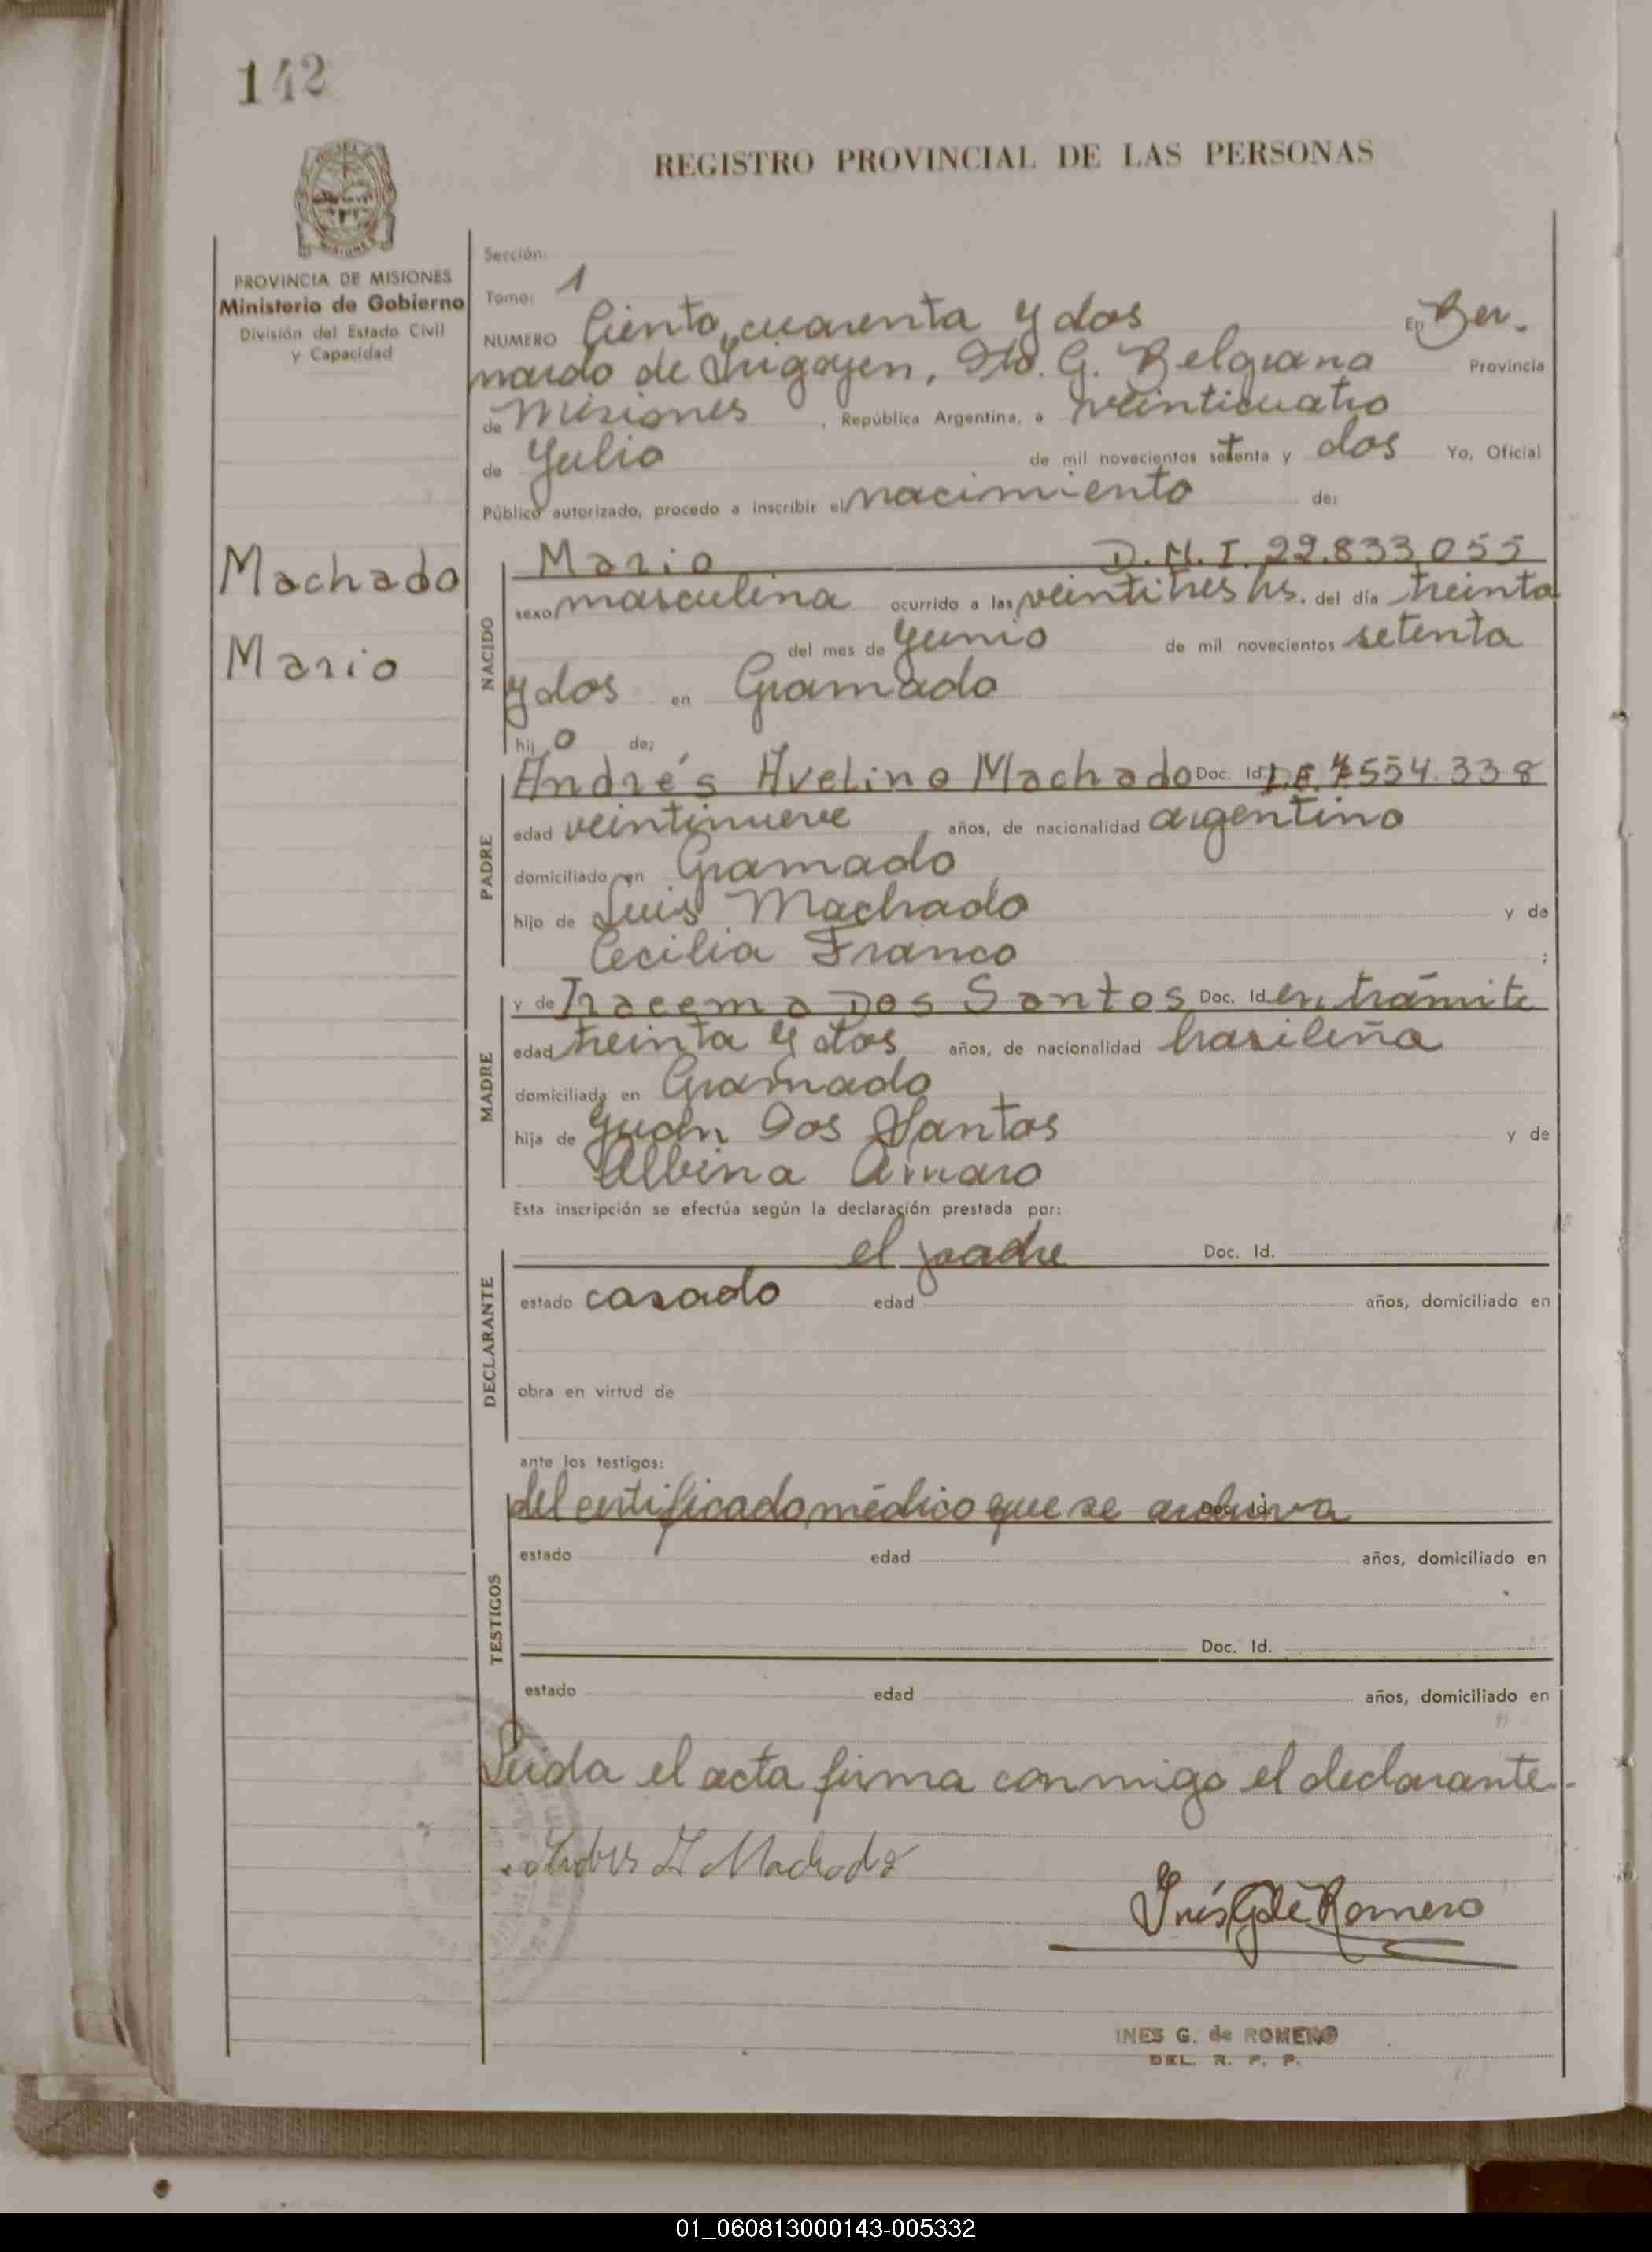 142
REGISTRO PROVINCIAL DE LAS PERSONAS
PROVINCIA DE MISIONES
Ministerio de Gobierno
División del Estado Civil
y Capacidad
Machado
Mario
Sección:
Tomo: 1
NUMERO Ciento cuarenta y dos En Ber.
nardo de Irigoyen, Dto. G. Belgrano Provincia
de Misiones, República Argentina, a veinticuatro
de Julio de mil novecientos setenta y dos Yo, Oficial
Público autorizado, procedo a inscribir el nacimiento de:
NACIDO
Mario D.N.I. 22.833.055
sexo masculino ocurrido a las veintitres hs. del día treinta
del mes de Junio de mil novecientos setenta
y dos en Gramado
hijo de:
PADRE
Andrés Avelino Machado Doc. Id. L.E. 7.554.338
edad veintinueve, años, de nacionalidad argentino
domiciliado en Gramado
hijo de Luis Machado y de
Cecilia Franco ;
MADRE
y de Iracema Dos Santos Doc. Id. en trámite
edad treinta y dos años, de nacionalidad brasileña
domiciliada en Gramado
hija de Juan Dos Santos y de
Albina Amaro
Esta inscripción se efectúa según la declaración prestada por:
DECLARANTE
el padre Doc. Id.
estado casado edad años, domiciliado en
obra en virtud de
ante los testigos:
TESTIGOS
del certificado médico que se archiva Doc. Id.
estado edad años, domiciliado en
Doc. Id.
estado edad años, domiciliado en
Leida el acta firma conmigo el declarante.-
Andres A Machado
Inés G de Romero
INES G. de ROMERO
DEL. R. P. P.
01_060813000143-005332